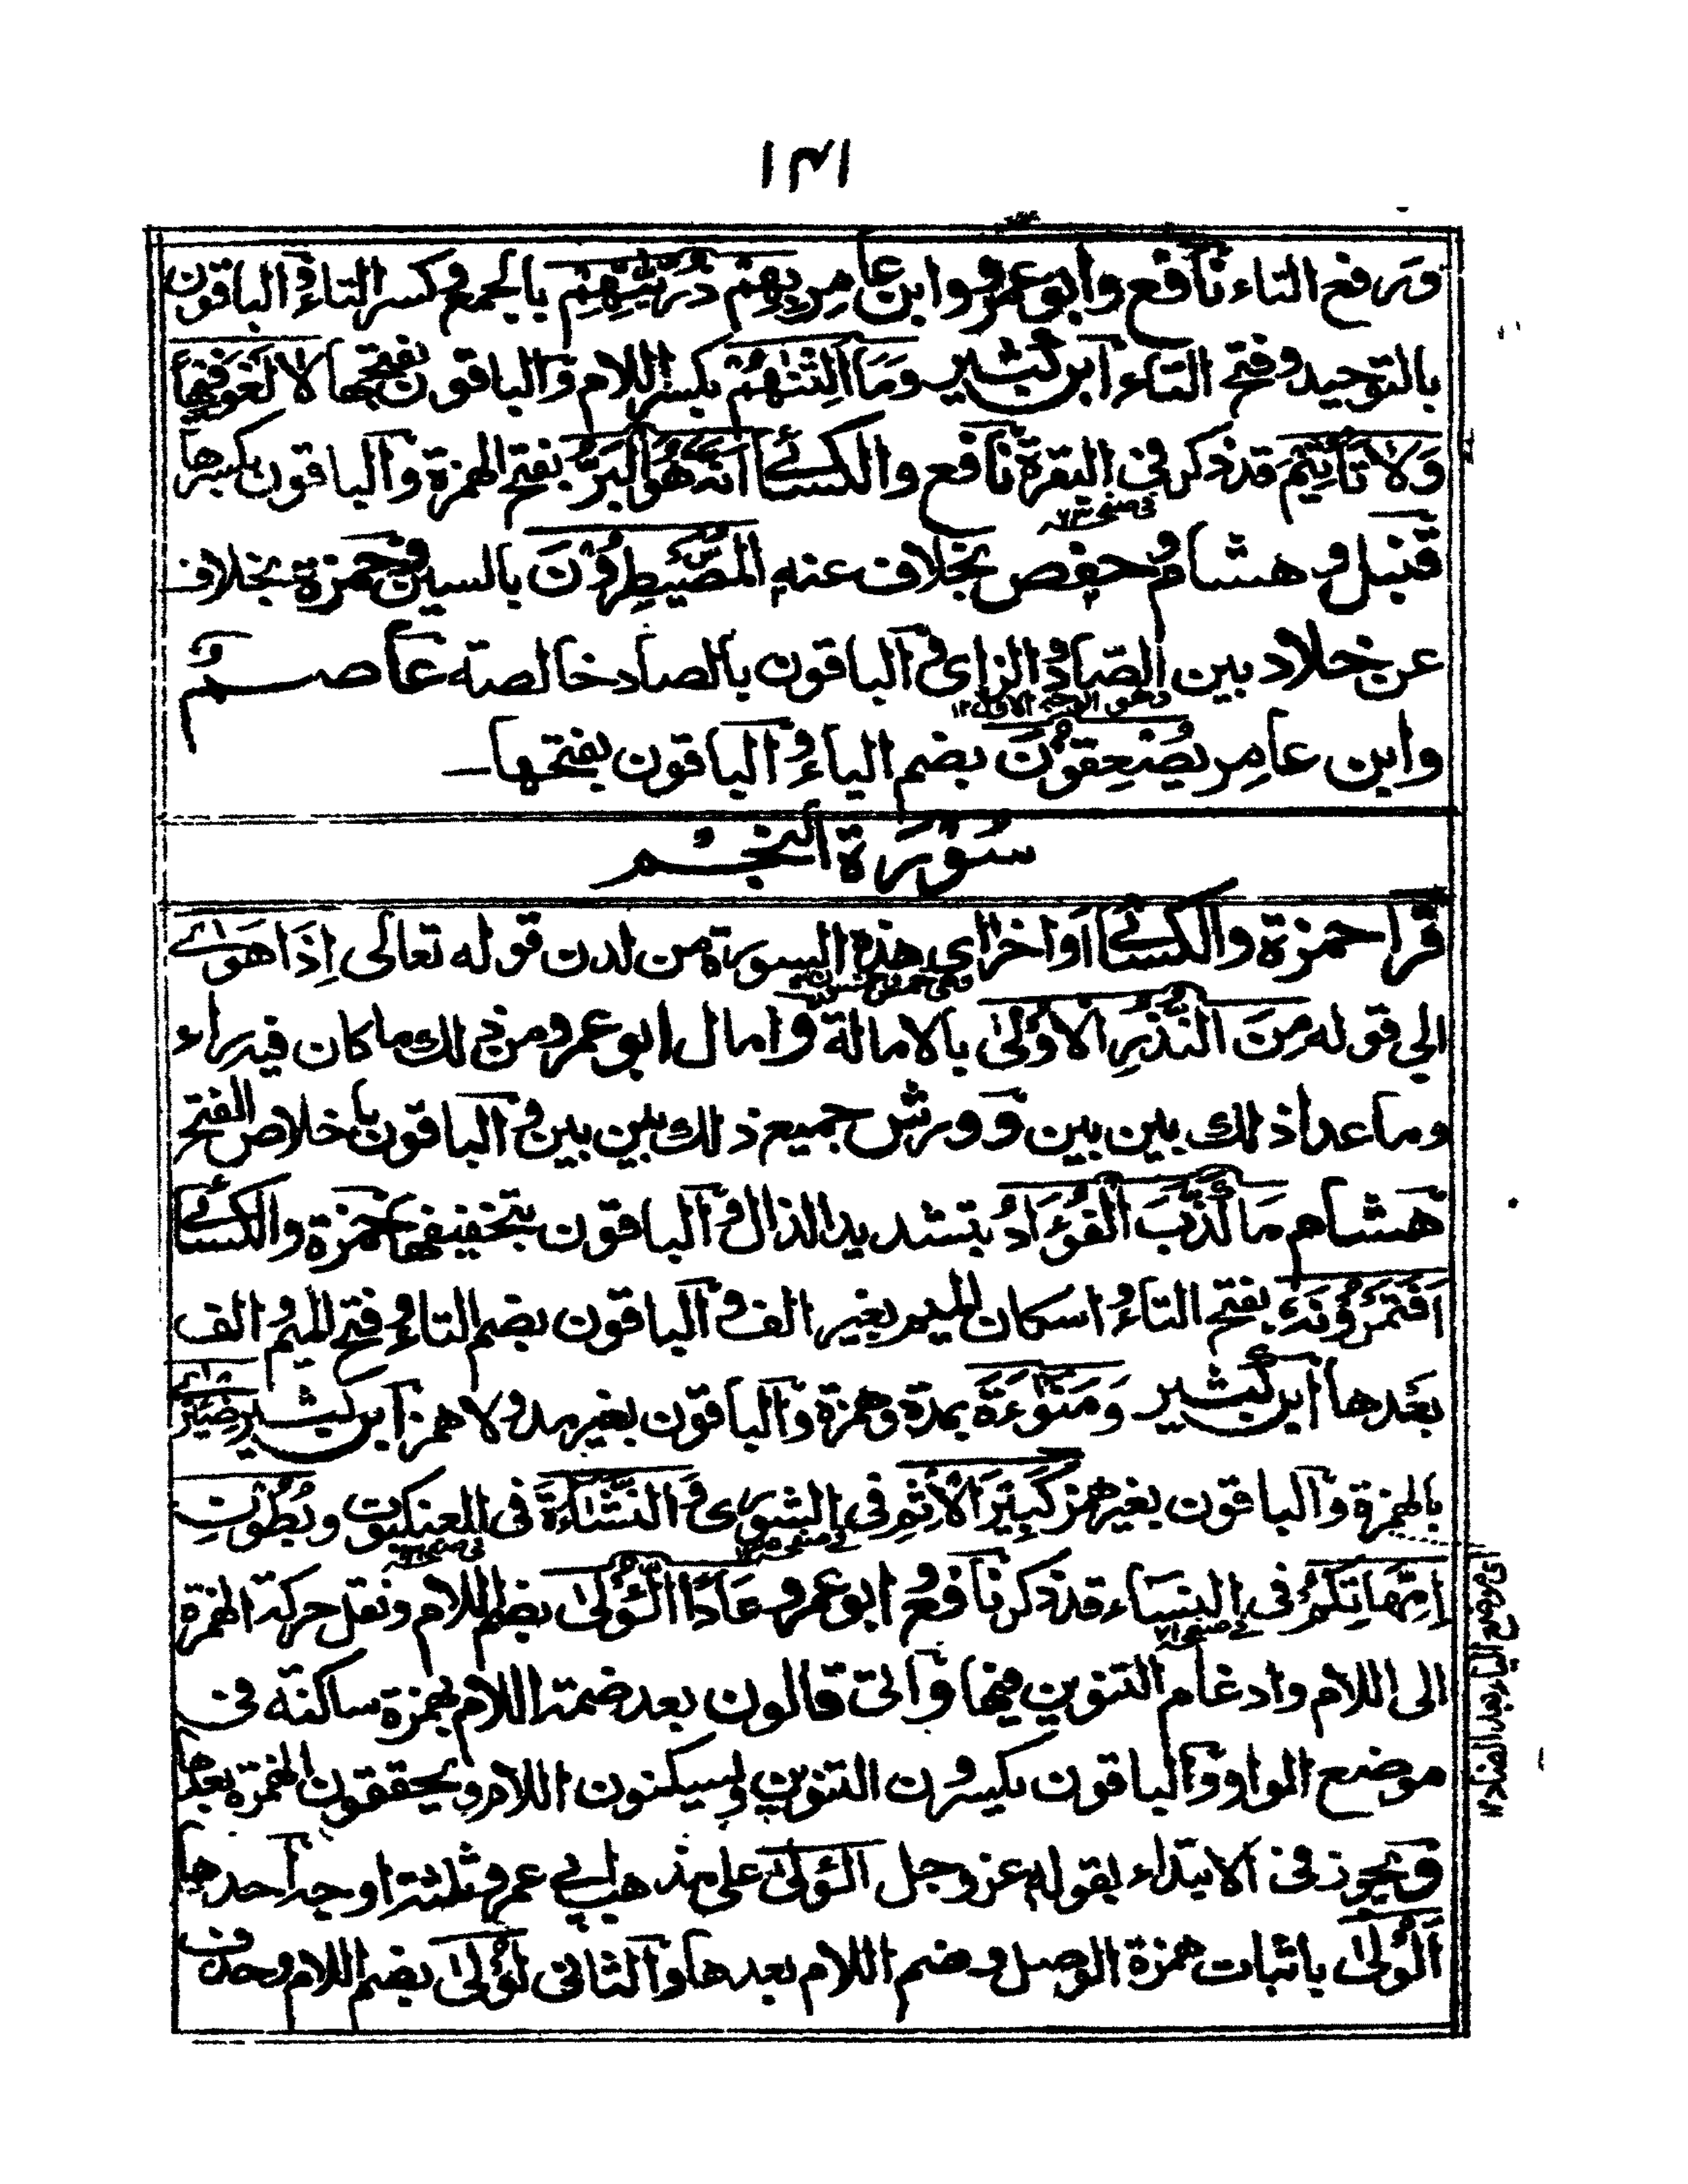 ١٣١
ورفع التاء نافع وابوعمرو وابن عامر بِهِمْ ذُرِّيّٰتِهِمْ بالجمع وكسر التاء والباقون
بالتوحيد وفتح التاء ابن كثير وَمَا اَلِتْنٰهُمْ بكسر اللام والباقون بفتحها لَا لَغْوَ فِيهَا
وَلَا تَاْثِيْمَ قد ذكر فى البقرة نافع والكسائے اَنَّهٗ هُوَ الْبَرُّ بفتح الهمزة والباقون بكسرها
قنبل وهشام وحفص بخلاف عنه الْمُصَۜيْطِرُوْنَ بالسين وحمزة بخلاف
عن خلاد بين الصاد والزاى والباقون بالصاد خالصته عاصم و
وابن عامر يُصْعَقُوْنَ بضم الياء والباقون بفتحها
سُوْرَة النجم
قرأ حمزة والكسائے اواخر اى هذه السورة من لدن قوله تعالى اِذَا هَوٰے
الى قوله مِنَ النُّذُرِ الْاُوْلٰى بالامالة وامال ابوعمرو من ذلك ما كان فيه راء
وما عدا ذلك بين بين و ورش جميع ذلك بين بين والباقون باخلاص الفتح
هشام مَا كَذَّبَ الْفُؤَادُ بتشديد الذال والباقون بتخفيفها حمزة والكسائے
اَفَتَمْرُوْنَهٗ بفتح التاء واسكان الميم بغير الف والباقون بضم التاء وفتح الميم والف
بعدها ابن كثير وَمَنٰوٓءَةَ بمدة وهمزة والباقون بغير مد ولا همز ابن كثير ضِئْزٰى
بالهمزة والباقون بغير همز كَبٰٓئِرَ الْاِثْمِ فى الشورى و النَّشْاَةَ فى العنكبوت و بُطُوْنِ
اُمَّهَاتِكُمْ فى النساء قد ذكر نافع وابوعمرو عَادًا الُّوْلٰى بضم اللام ونقل حركة الهمزة
الى اللام وادغام التنوين فيها واتى قالون بعد ضمة اللام بهمزة ساكنة فى
موضع الواو والباقون يكسرون التنوين ويسكنون اللام ويحققون الهمزة بعدها
ويجوز فى الابتداء بقوله عز وجل الْاُوْلٰى على مذهب ابى عمرو ثلثة اوجه احدها
اَلُوْلٰى باثبات همزة الوصل وضم اللام بعدها والثانى لُوْلٰى بضم اللام وحذف
اى موضع الياء بعد الضاد ١٢